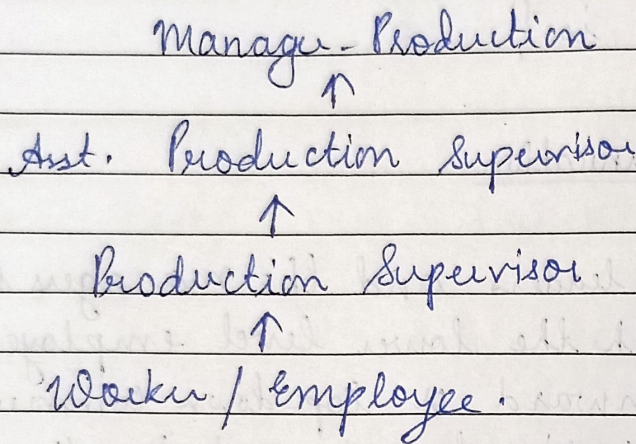 Manager - Production
↑
Asst. Production Supervisor
↑
Production Supervisor
↑
Worker / Employee.